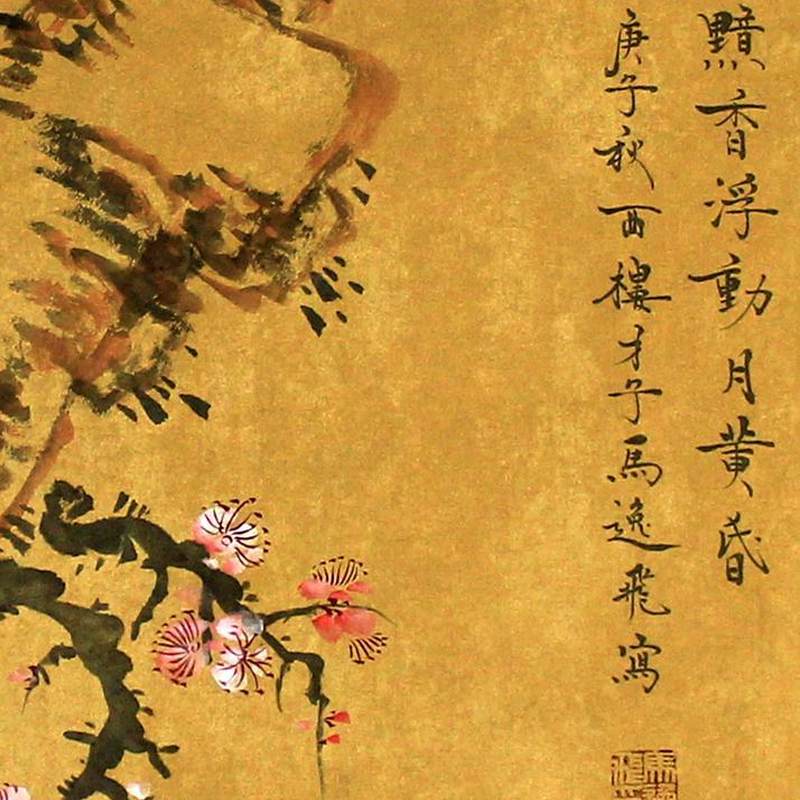 黯香浮動月黄昏
庚子秋西樓才子馬逸飛寫